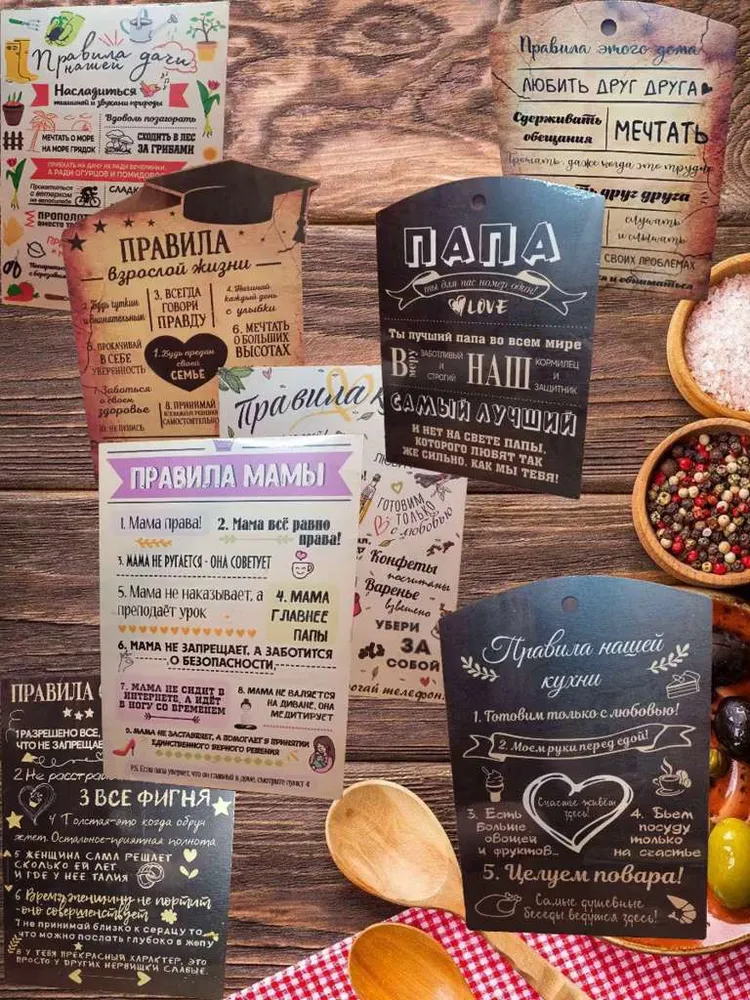 Правила
нашей дачи
Насладиться
тишиной и звуками природы
Вдоволь позагорать
МЕЧТАТЬ О МОРЕ
НА МОРЕ ГРЯДОК
СХОДИТЬ В ЛЕС
ЗА ГРИБАМИ
ПРИЕХАТЬ НА ДАЧУ НЕ РАДИ ВЕЧЕРИНКИ,
А РАДИ ОГУРЦОВ И ПОМИДОРОВ
Прокатиться
с ветерком
на велосипеде
Правила этого дома
ЛЮБИТЬ ДРУГ ДРУГА
Сдерживать
обещания
МЕЧТАТЬ
Прощать, даже когда это трудно
друг друга
слушать
и слышать
СВОИХ ПРОБЛЕМАХ
и обниматься
ПРАВИЛА
взрослой жизни
2. Будь чутким
и внимательным
3. ВСЕГДА
ГОВОРИ
ПРАВДУ
4. Начинай
каждый день
с улыбки
5. ПРОКАЧИВАЙ
В СЕБЕ
УВЕРЕННОСТЬ
1. Будь предан
своей
СЕМЬЕ
6. МЕЧТАТЬ
О БОЛЬШИХ
ВЫСОТАХ
7. Заботься
о своем
здоровье
8. ПРИНИМАЙ
САМОСТОЯТЕЛЬНО
ПАПА
ты для нас номер один!
LOVE
Ты лучший папа во всем мире
В меру
ЗАБОТЛИВЫЙ
И
СТРОГИЙ
НАШ
КОРМИЛЕЦ
И
ЗАЩИТНИК
САМЫЙ ЛУЧШИЙ
И НЕТ НА СВЕТЕ ПАПЫ,
КОТОРОГО ЛЮБЯТ ТАК
ЖЕ СИЛЬНО, КАК МЫ ТЕБЯ!
Правила
ГОТОВИМ
ТОЛЬКО
с любовью
Конфеты
посчитаны
Варенье
взвешено
УБЕРИ
ЗА
СОБОЙ
телефон.
ПРАВИЛА МАМЫ
1. Мама права!
2. Мама всё равно
права!
3. МАМА НЕ РУГАЕТСЯ - ОНА СОВЕТУЕТ
5. Мама не наказывает, а
преподаёт урок
4. МАМА
ГЛАВНЕЕ
ПАПЫ
6. МАМА НЕ ЗАПРЕЩАЕТ, А ЗАБОТИТСЯ
О БЕЗОПАСНОСТИ
7. МАМА НЕ СИДИТ В
ИНТЕРНЕТЕ, А ИДЁТ
В НОГУ СО ВРЕМЕНЕМ
8. МАМА НЕ ВАЛЯЕТСЯ
НА ДИВАНЕ, ОНА
МЕДИТИРУЕТ
9. МАМА НЕ ЗАСТАВЛЯЕТ, А ПОМОГАЕТ В ПРИНЯТИИ
ЕДИНСТВЕННОГО ВЕРНОГО РЕШЕНИЯ
P.S. Если папа уверяет, что он главный в доме, смотрите пункт 4
ПРАВИЛА
1 РАЗРЕШЕНО ВСЕ,
ЧТО НЕ ЗАПРЕЩЕ
2 Не расстра
3 ВСЕ ФИГНЯ
4 Толстая-это когда обруч
жмет. Остальное-приятная полнота
5 ЖЕНЩИНА САМА РЕШАЕТ
СКОЛЬКО ЕЙ ЛЕТ
И ГДЕ У НЕЕ ТАЛИЯ
6 Время женщину не портит
-оно совершенствует
7 не принимай близко к сердцу то,
что можно послать глубоко в жопу
8 У ТЕБЯ ПРЕКРАСНЫЙ ХАРАКТЕР, ЭТО
ПРОСТО У ДРУГИХ НЕРВИШКИ СЛАБЫЕ.
Правила нашей
кухни
1. Готовим только с любовью!
2. Моем руки перед едой!
Счастье живёт
здесь!
3. Есть
больше
овощей
и фруктов...
4. Бьем
посуду
только
на счастье
5. Целуем повара!
Самые душевные
беседы ведутся здесь!